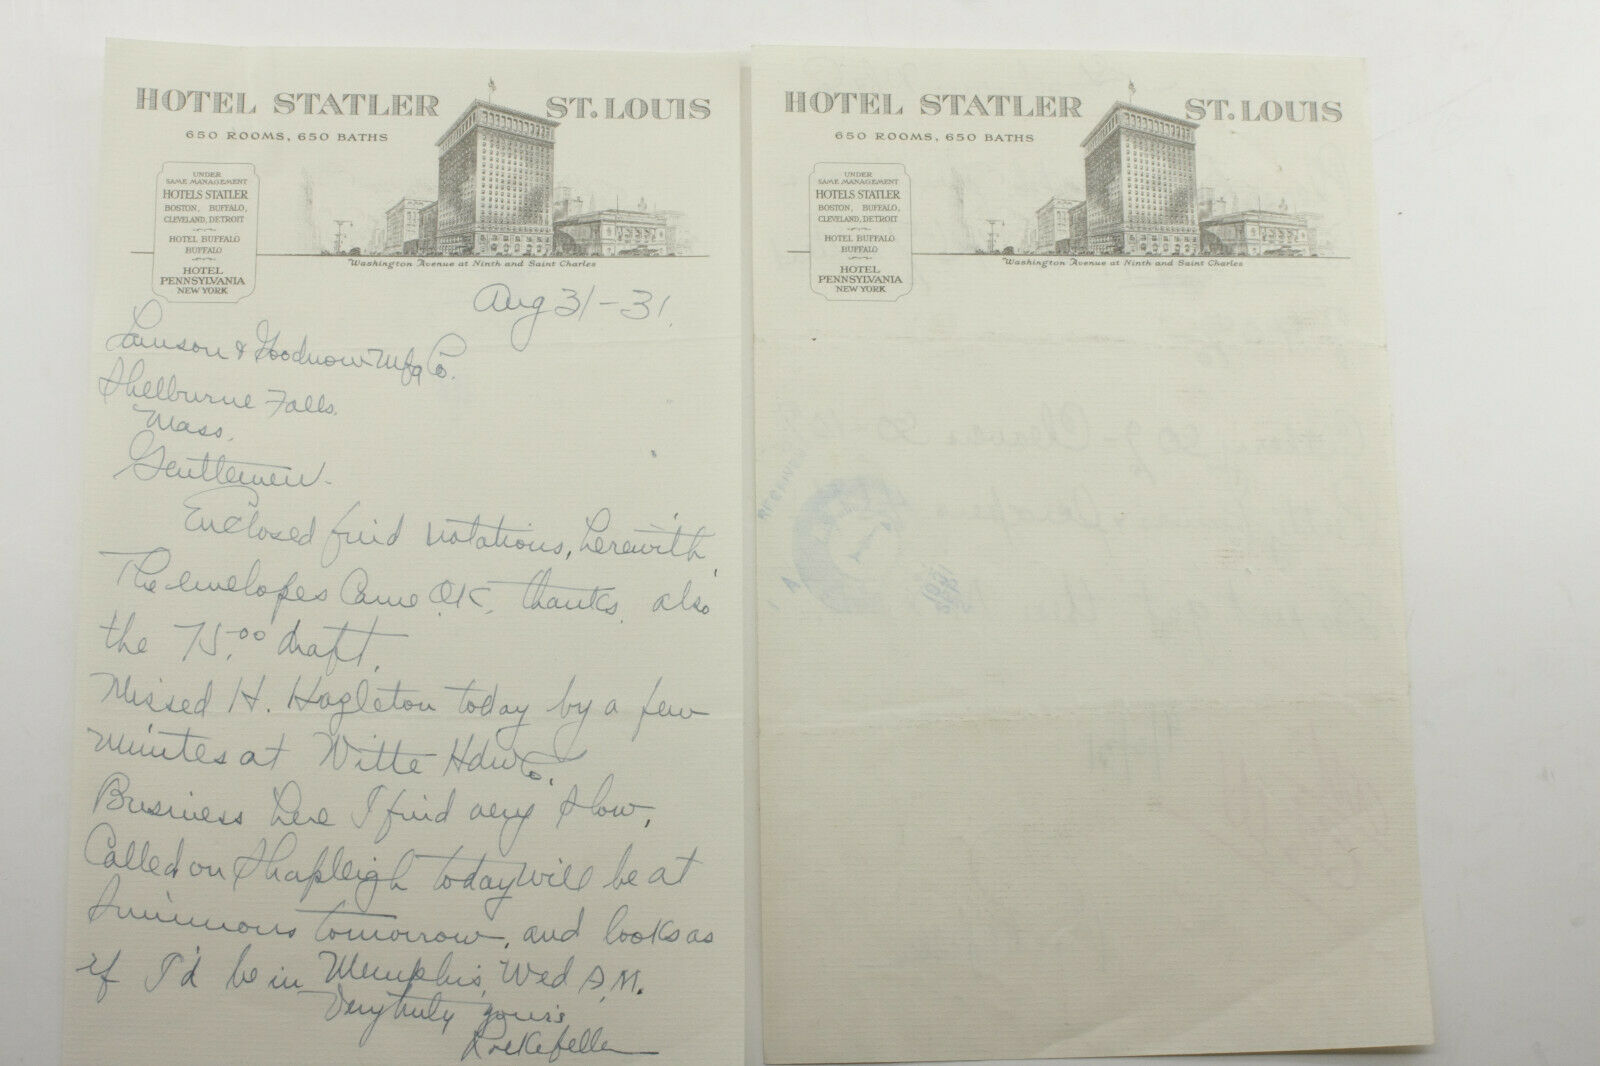 HOTEL STATLER ST. LOUIS
650 ROOMS, 650 BATHS
UNDER
SAME MANAGEMENT
HOTELS STATLER
BOSTON, BUFFALO,
CLEVELAND, DETROIT
HOTEL BUFFALO
BUFFALO
HOTEL
PENNSYLVANIA
NEW YORK
Washington Avenue at Ninth and Saint Charles
Aug 31-31
Lamson & Goodnow Mfg Co.
Shelburne Falls,
Mass.
Gentlemen.
Enclosed find notations, herewith,
The envelopes Came O.K. thanks, also
the 75.00 draft.
Missed H. Hagleton today by a few
minutes at Witte Hdw Co.
Business here I find very slow,
Called on Shapleigh today will be at
Simmons tomorrow, and looks as
if I'd be in Memphis, Wed A.M.
Very truly yours
Rockefeller
HOTEL STATLER ST. LOUIS
650 ROOMS, 650 BATHS
UNDER
SAME MANAGEMENT
HOTELS STATLER
BOSTON, BUFFALO,
CLEVELAND, DETROIT
HOTEL BUFFALO
BUFFALO
HOTEL
PENNSYLVANIA
NEW YORK
Washington Avenue at Ninth and Saint Charles